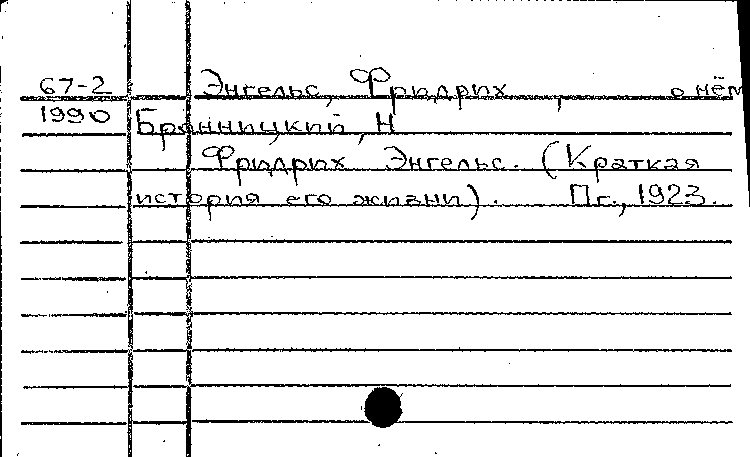 67-2 Энгельс, Фридрих, о нём
1990 Бранницкий, Н
Фридрих Энгельс. (Краткая
история его жизни). Пг., 1923.